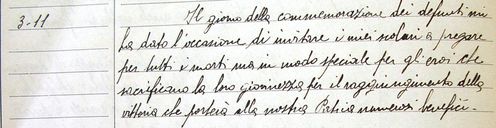 3-11
Il giorno della commemorazione dei defunti mi
ha dato l'occasione di invitare i miei scolari a pregare
per tutti i morti ma in modo speciale per gli eroi che
sacrificano la loro giovinezza per il raggiungimento della
vittoria che porterà alla nostra Patria numerosi benefici.